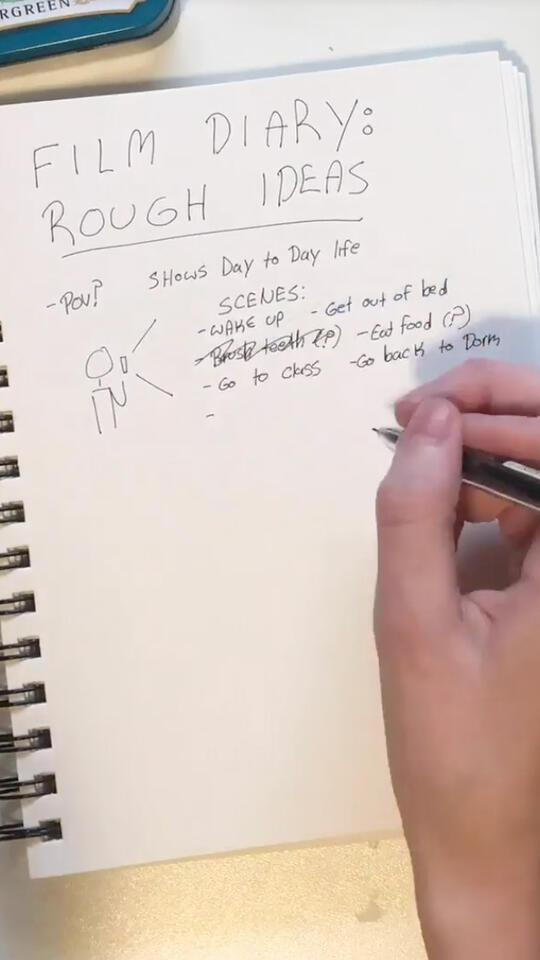 RGREEN
FILM DIARY:
ROUGH IDEAS
-POV? SHOWS Day to Day life
SCENES:
-WAKE UP -Get out of bed
-Brush teeth (?) -Eat food (?)
-Go to class -Go back to Dorm
-